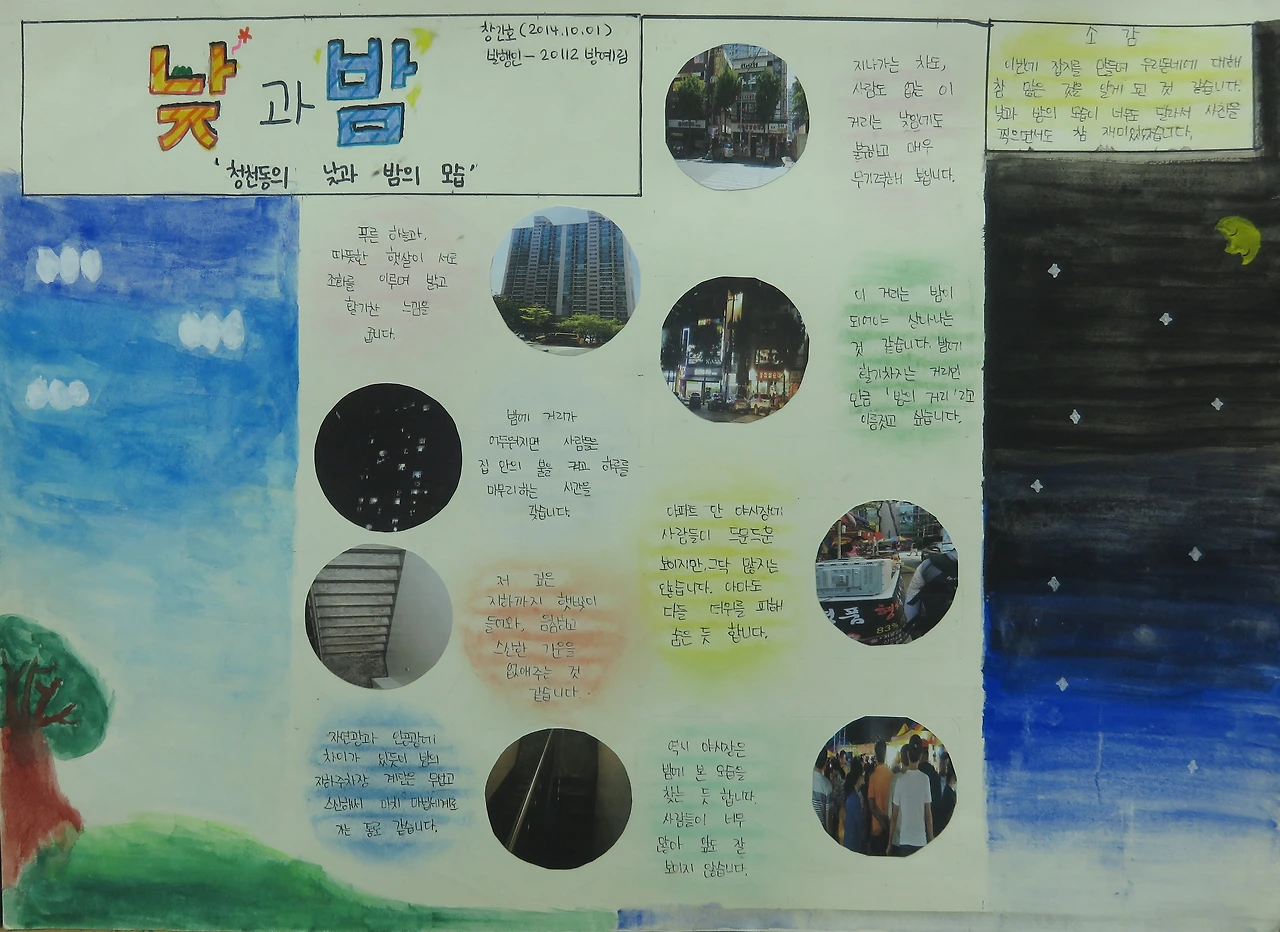 낮과 밤
창간호 (2014.10.01)
발행인 - 20112 방예림
"청천동의 낮과 밤의 모습"
푸른 하늘과,
따뜻한 햇살이 서로
조화를 이루며 밝고
활기찬 느낌을
줍니다.
밤에 거리가
어두워지면 사람들은
집 안의 불을 켜고 하루를
마무리하는 시간을
갖습니다.
저 깊은
지하까지 햇빛이
들어와, 음침하고
스산한 기운을
없애주는 것
같습니다.
자연광과 인공광에
차이가 있듯이 밤의
지하주차장 계단은 무섭고
스산해서 마치 마법세계로
가는 통로 같습니다.
지나가는 차도,
사람도 없는 이
거리는 낮임에도
불구하고 매우
무기력해 보입니다.
이 거리는 밤이
되어야 살아나는
것 같습니다. 밤에
활기차지는 거리인
만큼 '밤의 거리'라고
이름짓고 싶습니다.
아파트 안 야시장에
사람들이 드문드문
보이지만, 그닥 많지는
않습니다. 아마도
다들 더위를 피해
숨은 듯 합니다.
품 형
83%
역시 야시장은
밤에 본 모습을
찾는 듯 합니다.
사람들이 너무
많아 앞도 잘
보이지 않습니다.
소 감
이번에 잡지를 만들며 우리동네에 대해
참 많은 것을 알게 된 것 같습니다.
낮과 밤의 모습이 너무도 달라서 사진을
찍으면서도 참 재미있었습니다.